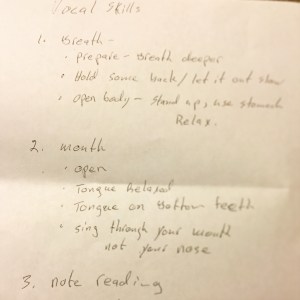 Vocal Skills
1. Breath -
• prepare - Breath deeper
• Hold some back / let it out slow
• open body - stand up, use stomach
Relax.
2. mouth
• open
• Tongue Relaxed
• Tongue on Bottom teeth
• sing through your mouth
not your nose
3. note reading